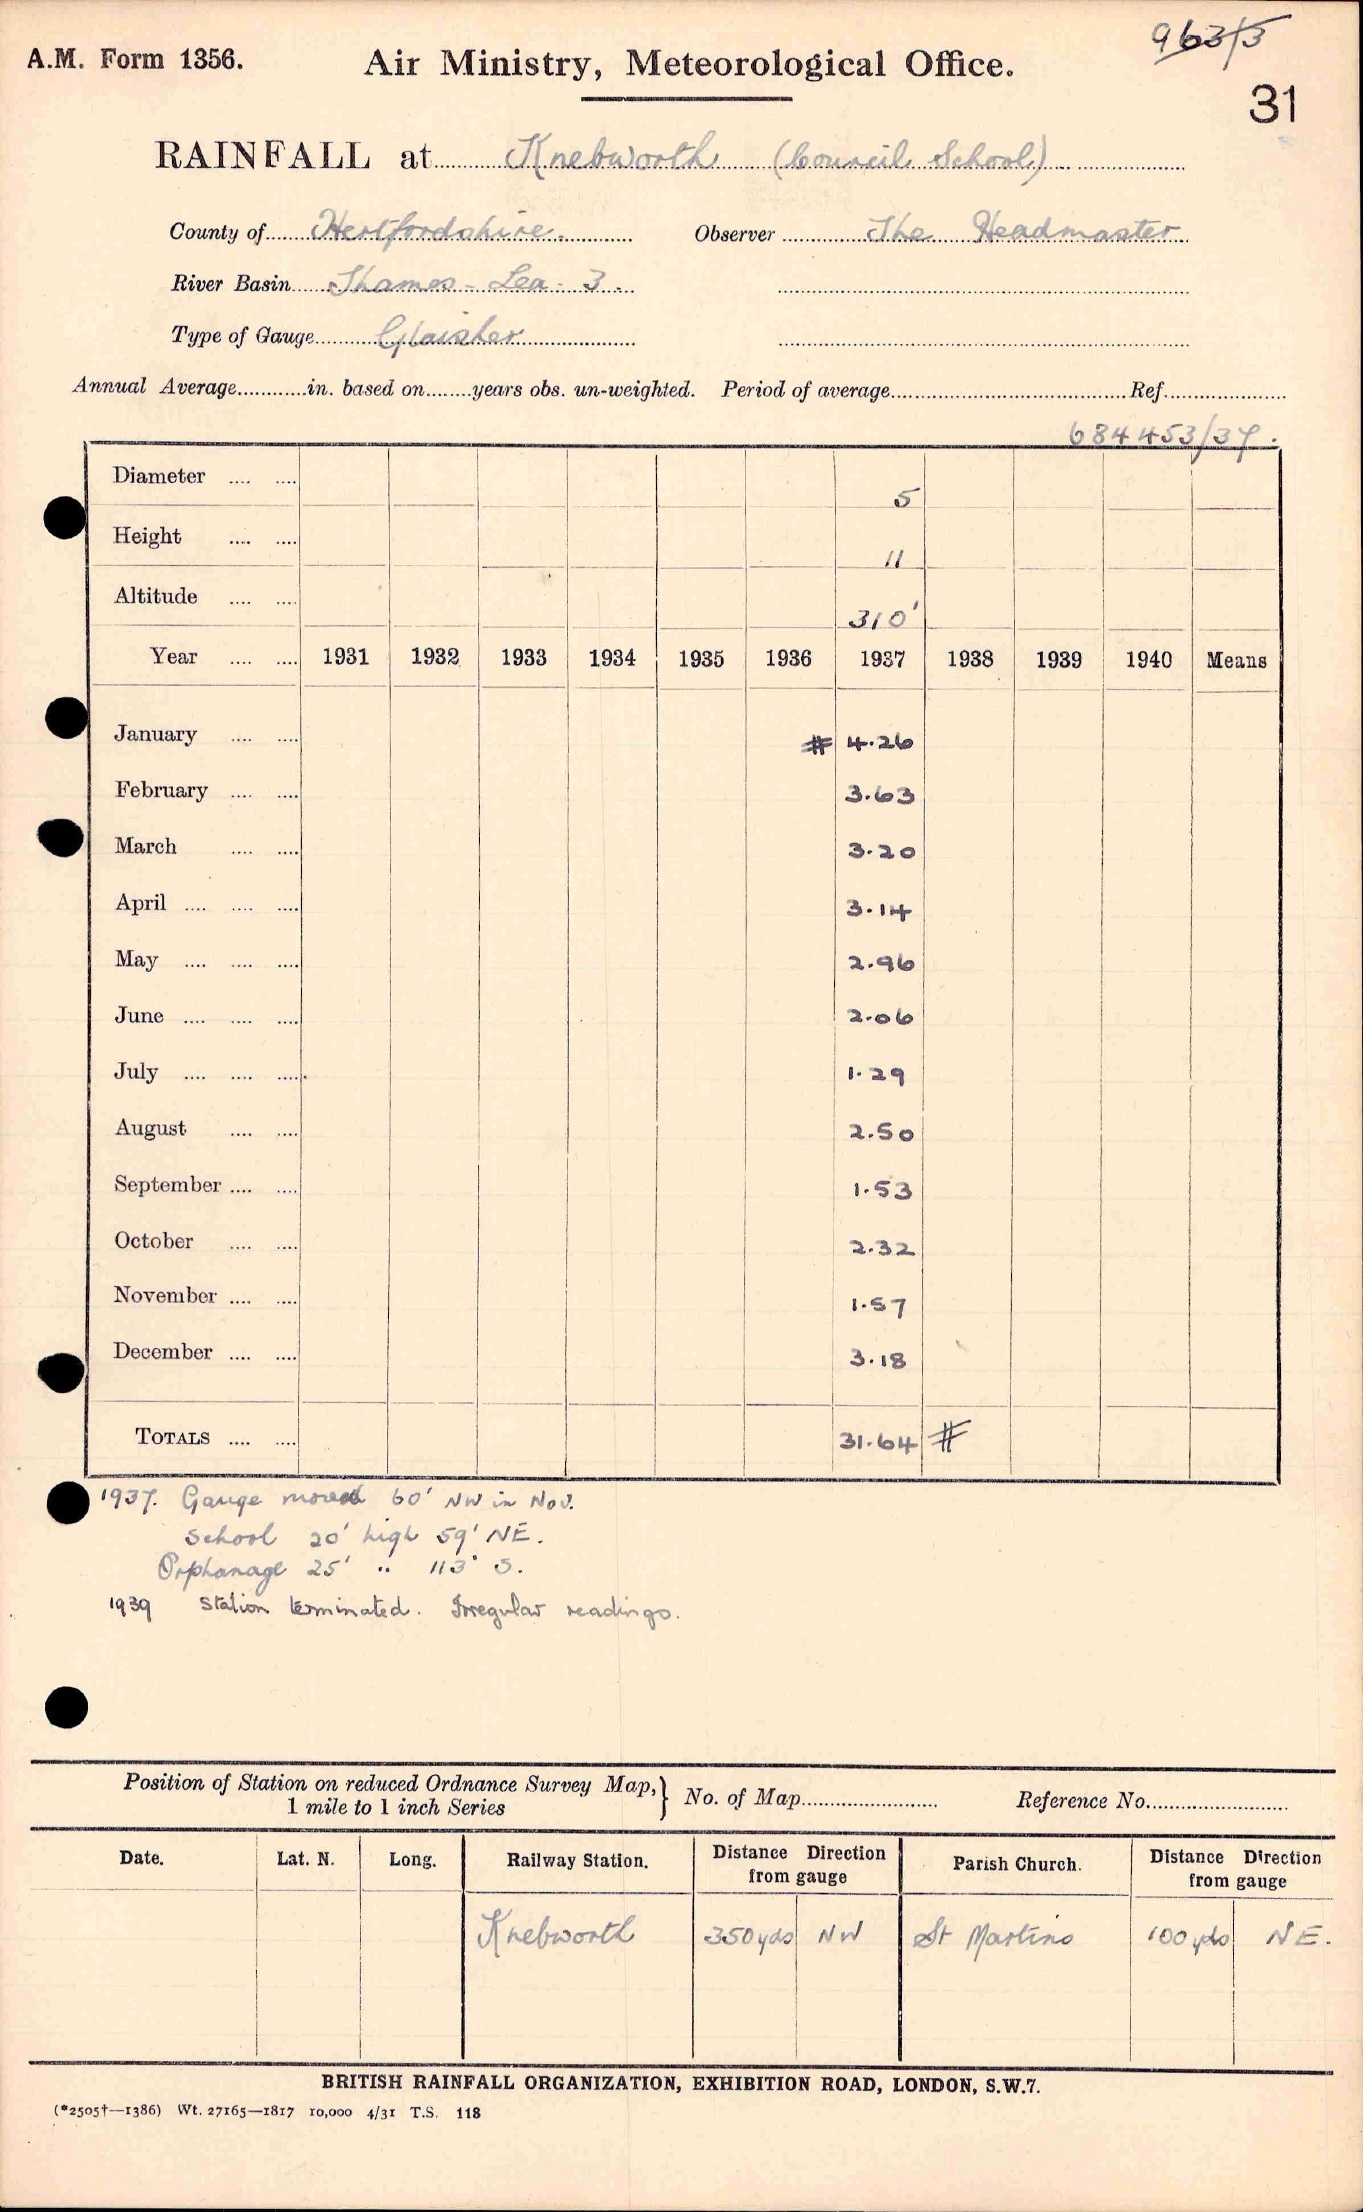 963/3
A.M. Form 1356. Air Ministry, Meteorological Office.
31
RAINFALL at Knebworth (Council School)
County of Hertfordshire. Observer The Headmaster
River Basin Thames - Lea - 3.
Type of Gauge Glaisher
Annual Average............in. based on........years obs. un-weighted. Period of average........................................Ref.....................
684453/37.
Diameter .... .... 5
Height .... .... 11
Altitude .... .... 310'
Year .... .... 1931 1932 1933 1934 1935 1936 1937 1938 1939 1940 Means
January .... .... # 4.26
February .... .... 3.63
March .... .... 3.20
April .... .... .... 3.14
May .... .... .... 2.96
June .... .... .... 2.06
July .... .... .... 1.29
August .... .... 2.50
September .... .... 1.53
October .... .... 2.32
November .... .... 1.57
December .... .... 3.18
TOTALS .... .... 31.64 #
1937. Gauge moved 60' NW in Nov.
School 20' high 59' NE.
Orphanage 25' " 113' S.
1939 Station terminated. Irregular readings.
Position of Station on reduced Ordnance Survey Map,} No. of Map........................ Reference No.........................
1 mile to 1 inch Series
Date. Lat. N. Long. Railway Station. Distance Direction from gauge Parish Church. Distance Direction from gauge
Knebworth 350 yds NW St Martins 100 yds NE.
BRITISH RAINFALL ORGANIZATION, EXHIBITION ROAD, LONDON, S.W.7.
(*2505†—1386) Wt. 27165—1817 10,000 4/31 T.S. 118